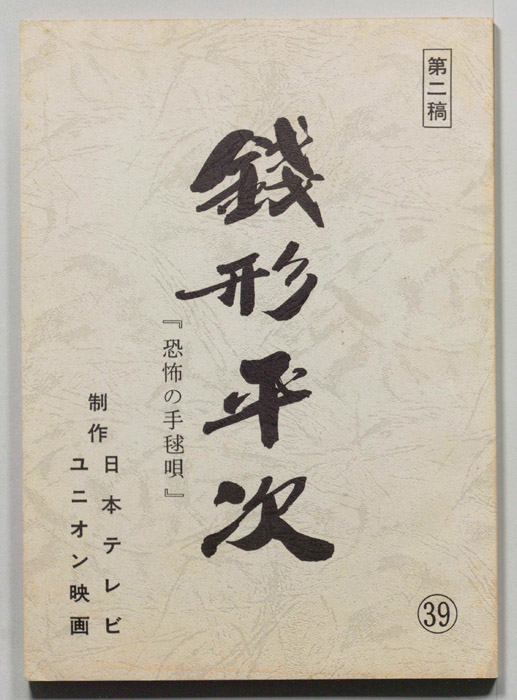 第二稿
銭形平次
『恐怖の手毬唄』
制作
日本テレビ
ユニオン映画
39